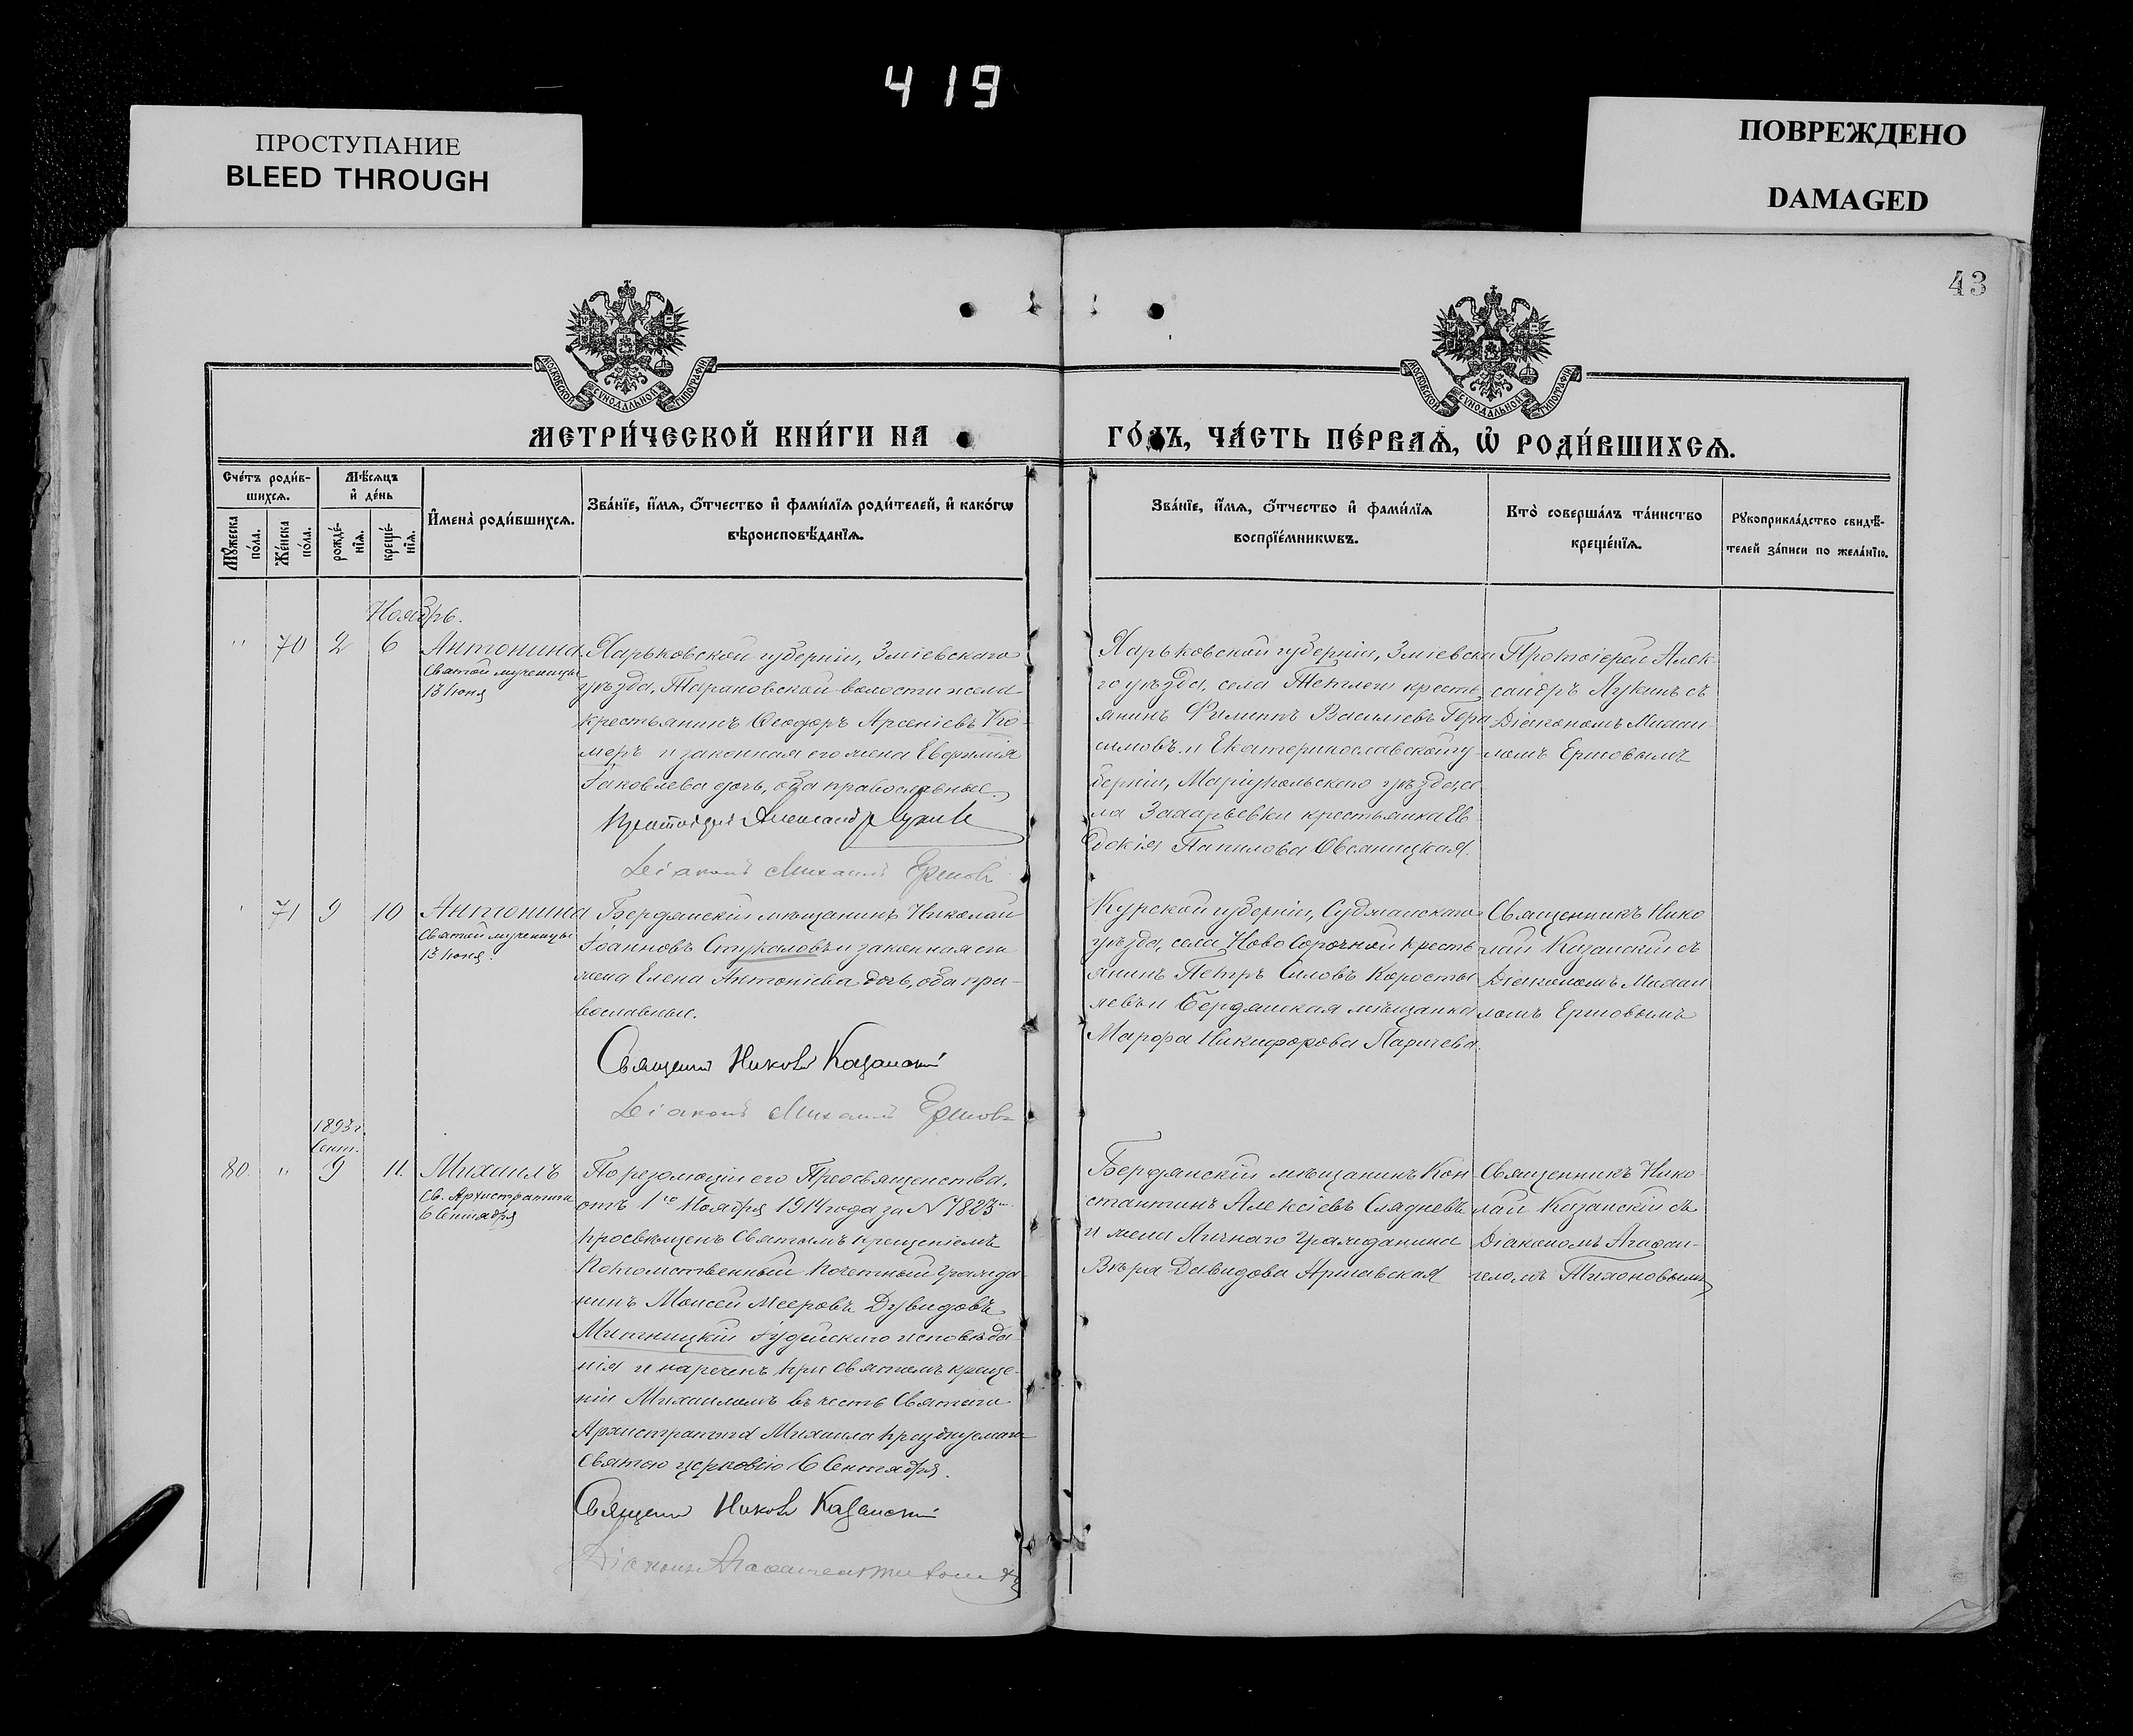 419
ПРОСТУПАНИЕ
BLEED THROUGH
ПОВРЕЖДЕНО
DAMAGED
43
МОСКОВСКОЙ СУНОДАЛЬНОЙ ТИПОГРАФІИ
МОСКОВСКОЙ СУНОДАЛЬНОЙ ТИПОГРАФІИ
МЕТРИ́ЧЕСКОЙ КНИ́ГИ НА
ГО́ДЪ, ЧА́СТЬ ПЕ́РВАѦ, Ѡ҆ РОДИ́ВШИХСѦ.
Сче́тъ роди́в-
шихсѧ.
Мꙋ́жеска по́ла.
Же́нска по́ла.
Мѣ́сѧцъ
и҆ де́нь
рожде́-нїѧ.
креще́-нїѧ.
И҆мена̀ роди́вшихсѧ.
Зва́нїе, и҆́мѧ, ѻ҆́тчество и҆ фами́лїѧ роди́телей, и҆ како́гѡ
вѣроисповѣ́данїѧ.
Зва́нїе, и҆́мѧ, ѻ҆́тчество и҆ фами́лїѧ
воспрїе́мникѡвъ.
Кто̀ соверша́лъ та́инство
креще́нїѧ.
Рꙋкоприкла́дство свидѣ́-
телей за́писи по жела́нїю.
Ноябрь.
" 70 2 6
Антонина
Святой мученицы
13 Іюня
Харьковской губерніи, Зміевскаго
уѣзда, Тарановской волости и села
крестьянинъ Ѳеодоръ Арсеніевъ Кю-
меръ и законная его жена Евфимія
Іаковлева дочь, оба православные.
Протоіерей Александръ Лукинъ
Діаконъ Михаилъ Ершовъ
Харьковской губерніи, Зміевска
го уѣзда, села крестъ
янинъ Филиппъ Василіевъ Гера
симовъ и Екатеринославской гу-
берніи, Маріупольскаго уѣзда, се
ла Захарьевки крестьянка Ев
докія Овсяницкая.
Протоіерей Алек-
сандръ Лукинъ съ
Діакономъ Михаи-
ломъ Ершовымъ
71 9 10
Антонина
Святой мученицы
13 Іюня.
Бердянскій мѣщанинъ Николай
Іоанновъ Стукаловъ и законная его
жена Елена Антоніева дочь, оба пра-
вославные.
Священникъ Николай Казанскій
Діаконъ Михаилъ Ершовъ
Курской губерніи, Суджанскаго
уѣзда, села Ново Сорочной кресть
янинъ Петръ Силовъ Коросты
левъ и Бердянская мѣщанка
Марфа Никифорова Ларичева.
Священникъ Нико
лай Казанскій съ
Діакономъ Михаи
ломъ Ершовымъ
1893 г.
Сент.
80. " 9 11.
Михаилъ
Св. Архистратига
6 Сентября
По резолюціи его Преосвященства,
отъ 1го Ноября 1914 года за № 7823
просвѣщенъ Святымъ Крещеніемъ
Потомственный Почетный Гражда-
нинъ Моисей Мееровъ Дувидовъ
Митницкій Іудейскаго исповѣда-
нія и нареченъ при Святомъ креще-
ніи Михаиломъ въ честь Святаго
Архистратига Михаила празднуемаго
Святою церковію 6 Сентября.
Священникъ Николай Казанскій
Діаконъ Агаѳангелъ Тихоновъ
Бердянскій мѣщанинъ Кон
стантинъ Алексіевъ Сладневъ
и жена Личнаго Гражданина
Вѣра Давидова Аршавская
Священникъ Нико-
лай Казанскій съ
Діакономъ Агаѳан-
геломъ Тихоновымъ